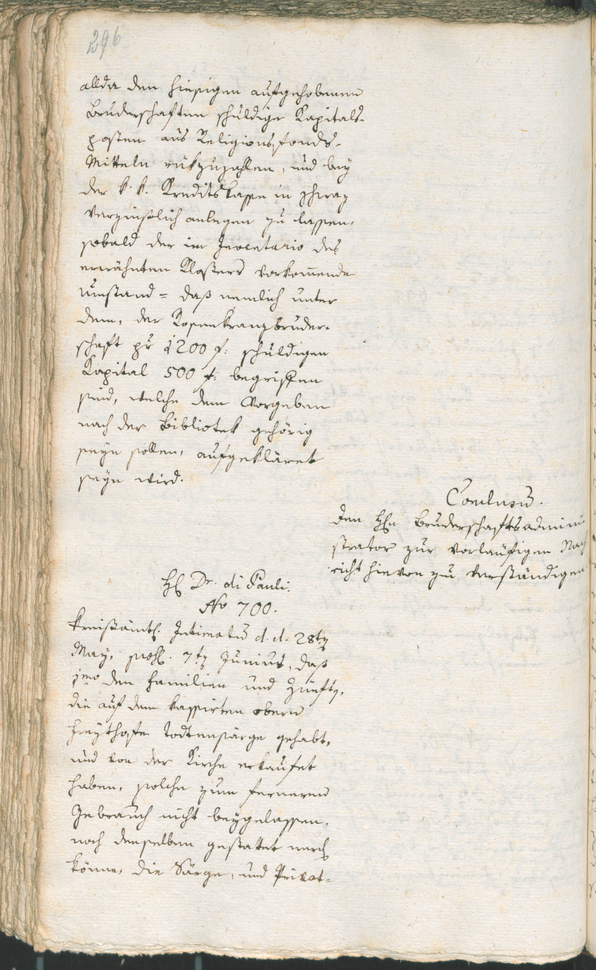 296
allda den hiesigen aufgehobenen
Bruderschaften schuldige Kapitals-
posten aus Religionsfonds-
Mitteln rükzuzahlen, und bey
der k. k. Kreditskasse in Schwaz
verzinslich anlegen zu lassen,
sobald der im Inventario des
erwähnten Klosters vorkommende
Umstand = daß nemlich unter
dem, der Rosenkranzbruder-
schaft pr 1200 f: schuldigen
Kapital 500 f: begriffen
sind, welche dem Vorgeben
nach der Bibliotek gehörig
seyn sollen, aufgekläret
seyn wird.
Conclusum.
Den Hh Bruderschaftsadmini
strator zur vorläufigen Nach
richt hievon zu verständigen
H Dr. di Pauli.
No 700.
Kreisämtl. Intimatum d. d. 28ten
May, 7ten Junius, daß
jmo den Familien und Zünften,
die auf dem kassirten obern
Freythofe Todtensärge gehabt,
und von der Kirche erkaufet
haben, solche zum ferneren
Gebrauch nicht beygelassen,
noch denselben gestattet werden
könne, die Särge, und Privat-